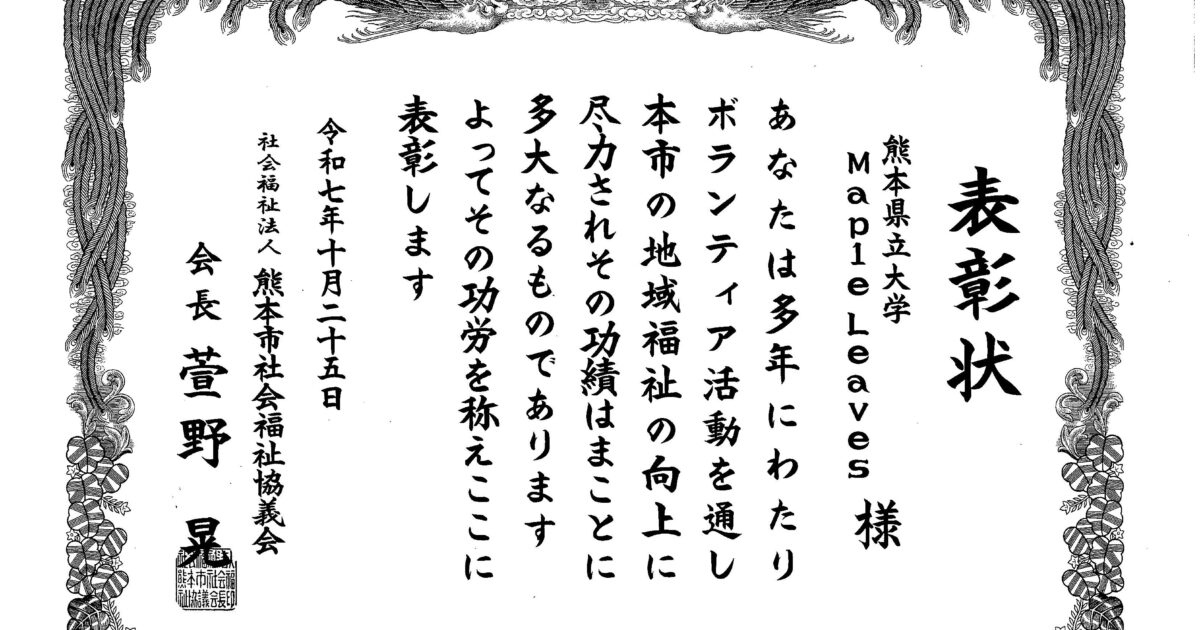 表彰状
熊本県立大学
Maple Leaves 様
あなたは多年にわたり
ボランティア活動を通し
本市の地域福祉の向上に
尽力されその功績はまことに
多大なるものであります
よってその功労を称えここに
表彰します
令和七年十月二十五日
社会福祉法人 熊本市社会福祉協議会
会長 萱野 晃